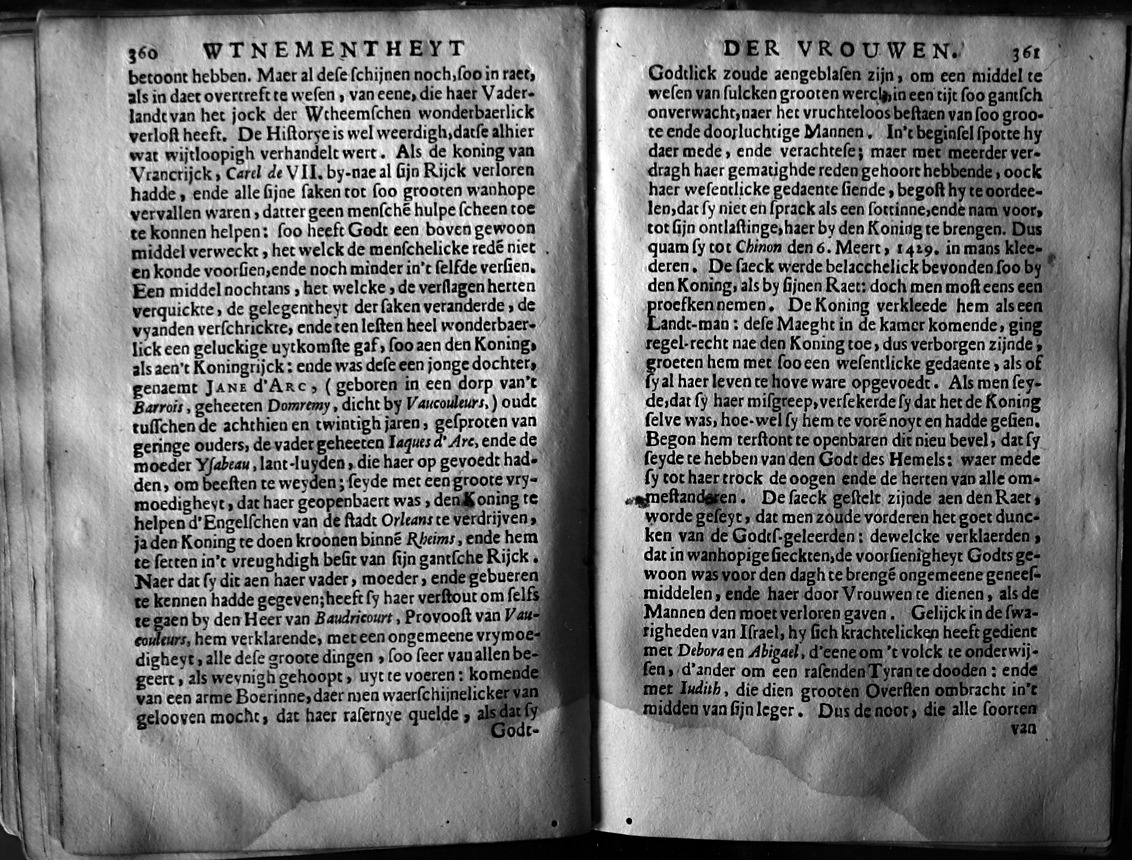 360 WTNEMENTHEYT
betoont hebben. Maer al deſe ſchijnen noch, ſoo in raet,
als in daet overtreft te weſen, van eene, die haer Vader-
landt van het jock der Wtheemſchen wonderbaerlick
verloſt heeft. De Hiſtorye is wel weerdigh, datſe alhier
wat wijtloopigh verhandelt wert. Als de koning van
Vrancrijck, Carel de VII. by-nae al ſijn Rijck verloren
hadde, ende alle ſijne ſaken tot ſoo grooten wanhope
vervallen waren, datter geen menſchē hulpe ſcheen toe
te konnen helpen: ſoo heeft Godt een boven gewoon
middel verweckt, het welck de menſchelicke redē niet
en konde voorſien, ende noch minder in't ſelfde verſien.
Een middel nochtans, het welcke, de verſlagen herten
verquickte, de gelegentheyt der ſaken veranderde, de
vyanden verſchrickte, ende ten leſten heel wonderbaer-
lick een geluckige uytkomſte gaf, ſoo aen den Koning,
als aen't Koningrijck: ende was deſe een jonge dochter,
genaemt JANE d'ARC, (geboren in een dorp van't
Barrois, geheeten Domremy, dicht by Vaucouleurs,) oudt
tuſſchen de achthien en twintigh jaren, geſproten van
geringe ouders, de vader geheeten Iaques d'Arc, ende de
moeder Yſabeau, lant-luyden, die haer op gevoedt had-
den, om beeſten te weyden; ſeyde met een groote vry-
moedigheyt, dat haer geopenbaert was, den Koning te
helpen d'Engelſchen van de ſtadt Orleans te verdrijven,
ja den Koning te doen kroonen binnē Rheims, ende hem
te ſetten in't vreughdigh beſit van ſijn gantſche Rijck.
Naer dat ſy dit aen haer vader, moeder, ende gebueren
te kennen hadde gegeven; heeft ſy haer verſtout om ſelfs
te gaen by den Heer van Baudricourt, Provooſt van Vau-
couleurs, hem verklarende, met een ongemeene vrymoe-
digheyt, alle deſe groote dingen, ſoo ſeer van allen be-
geert, als weynigh gehoopt, uyt te voeren: komende
van een arme Boerinne, daer men waerſchijnelicker van
gelooven mocht, dat haer raſernye quelde, als dat ſy
Godt-
DER VROUWEN. 361
Godtlick zoude aengeblaſen zijn, om een middel te
weſen van ſulcken grooten werck, in een tijt ſoo gantſch
onverwacht, naer het vruchteloos beſtaen van ſoo groo-
te ende doorluchtige Mannen. In't beginſel ſpotte hy
daer mede, ende verachteſe; maer met meerder ver-
dragh haer gematighde reden gehoort hebbende, oock
haer weſentlicke gedaente ſiende, begoſt hy te oordee-
len, dat ſy niet en ſprack als een ſottinne, ende nam voor,
tot ſijn ontlaſtinge, haer by den Koning te brengen. Dus
quam ſy tot Chinon den 6. Meert, 1429. in mans klee-
deren. De ſaeck werde belacchelick bevonden ſoo by
den Koning, als by ſijnen Raet: doch men moſt eens een
proefken nemen. De Koning verkleede hem als een
Landt-man: deſe Maeght in de kamer komende, ging
regel-recht nae den Koning toe, dus verborgen zijnde,
groeten hem met ſoo een weſentlicke gedaente, als of
ſy al haer leven te hove ware opgevoedt. Als men ſey-
de, dat ſy haer miſgreep, verſekerde ſy dat het de Koning
ſelve was, hoe-wel ſy hem te vorē noyt en hadde geſien.
Begon hem terſtont te openbaren dit nieu bevel, dat ſy
ſeyde te hebben van den Godt des Hemels: waer mede
ſy tot haer trock de oogen ende de herten van alle om-
meſtanderen. De ſaeck geſtelt zijnde aen den Raet,
worde geſeyt, dat men zoude vorderen het goet dunc-
ken van de Godtſ-geleerden: dewelcke verklaerden,
dat in wanhopige ſieckten, de voorſienigheyt Godts ge-
woon was voor den dagh te brengē ongemeene geneeſ-
middelen, ende haer door Vrouwen te dienen, als de
Mannen den moet verloren gaven. Gelijck in de ſwa-
righeden van Iſrael, hy ſich krachtelicken heeft gedient
met Debora en Abigael, d'eene om 't volck te onderwij-
ſen, d'ander om een raſenden Tyran te dooden: ende
met Iudith, die dien grooten Overſten ombracht in't
midden van ſijn leger. Dus de noot, die alle ſoorten
van